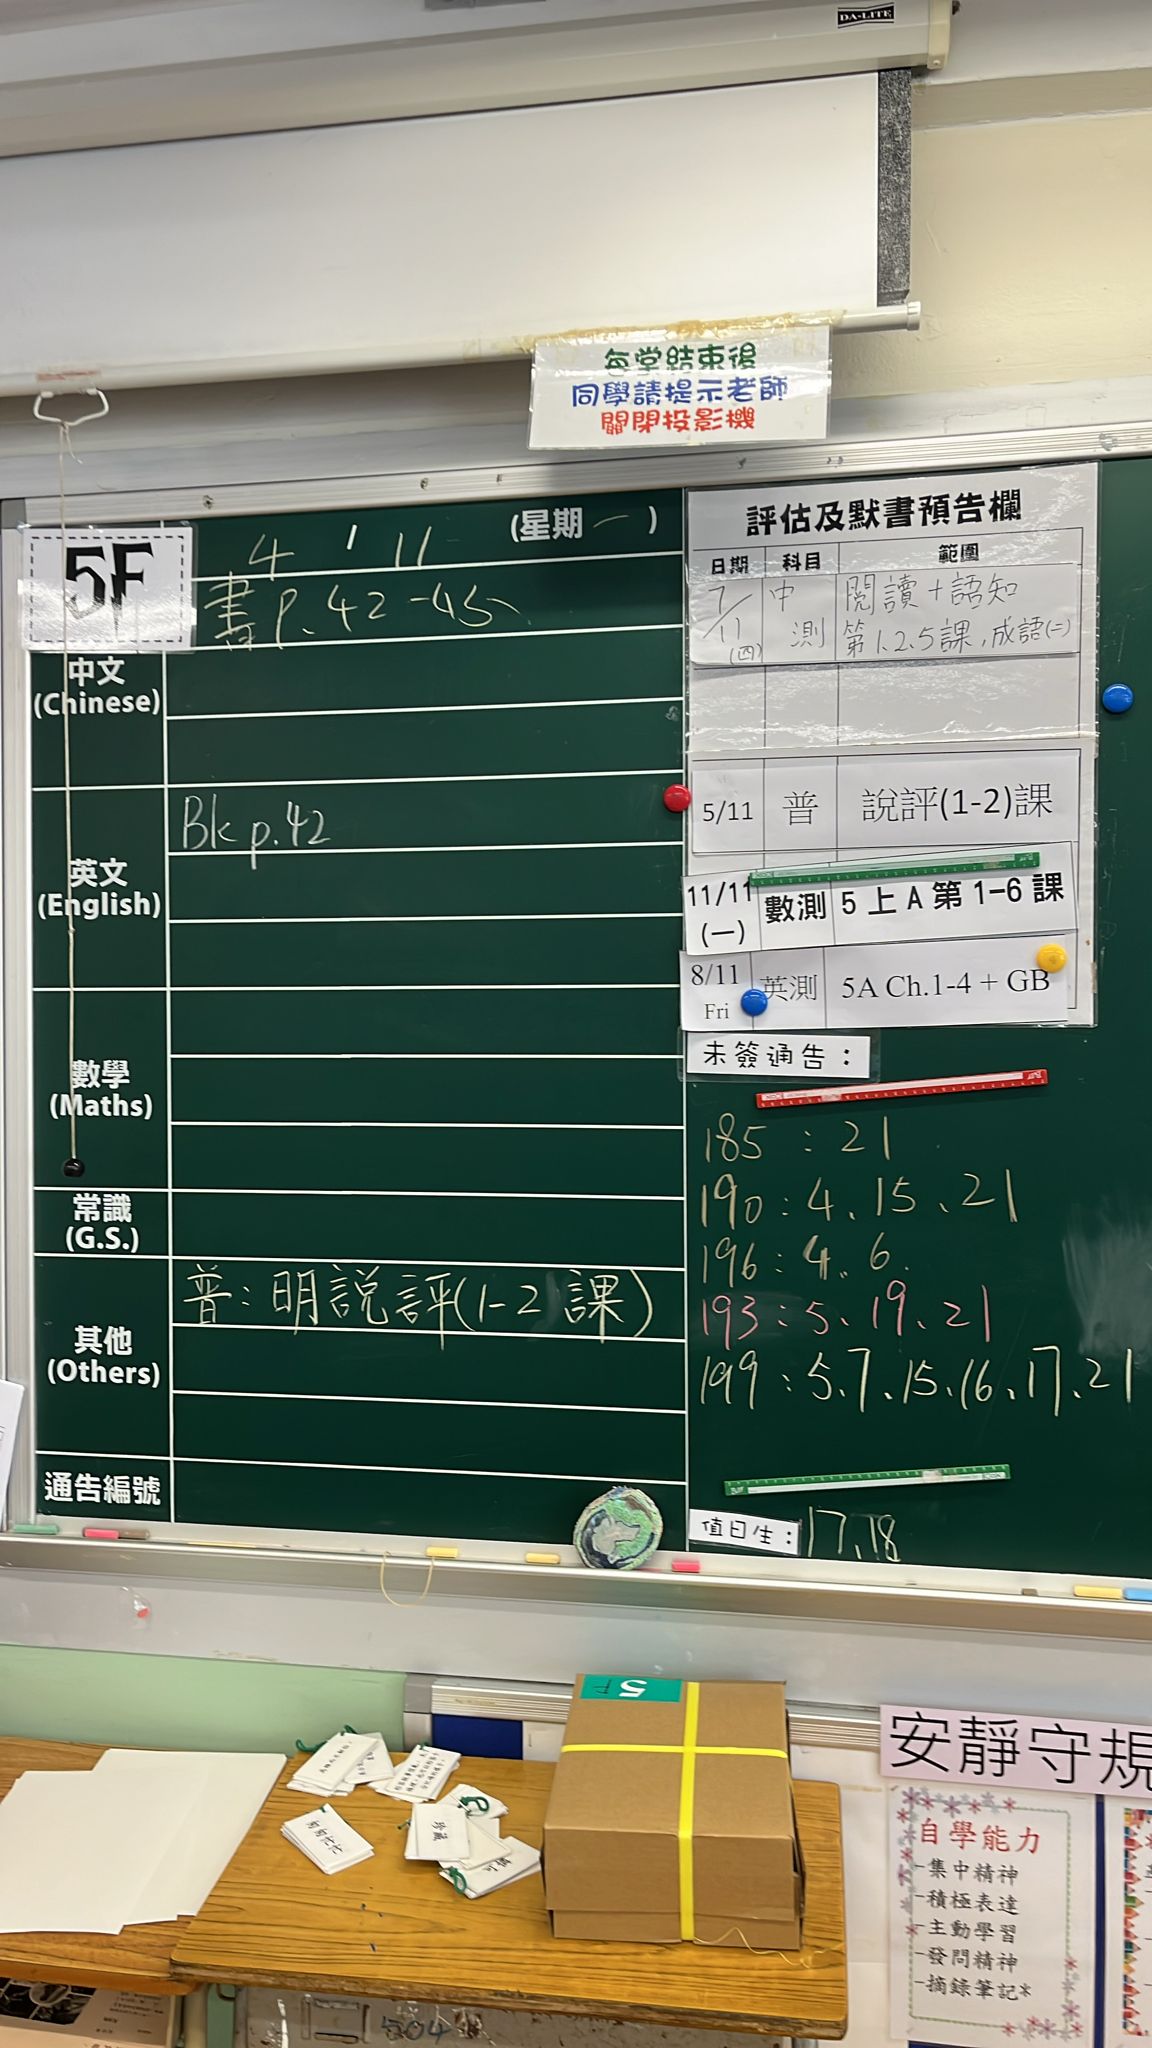 DA-LITE
每堂結束後
同學請提示老師
關閉投影機
5F
4 / 11 (星期一)
書P.42-45
中文
(Chinese)
英文
(English)
Bk p.42
數學
(Maths)
常識
(G.S.)
其他
(Others)
普:明說評(1-2課)
通告編號
評估及默書預告欄
日期 科目 範圍
7/11 (四) 中測 閱讀+語知
第1.2.5課,成語(二)
5/11 普 說評(1-2)課
11/11 (一) 數測 5上A第1-6課
8/11 Fri 英測 5A Ch.1-4 + GB
未簽通告:
185:21
190:4、15、21
196:4、6
193:5、19、21
199:5、7、15、16、17、21
值日生:17、18
5
珍藏
匆匆忙忙
504
安靜守規
自學能力
-集中精神
-積極表達
-主動學習
-發問精神
-摘錄筆記*